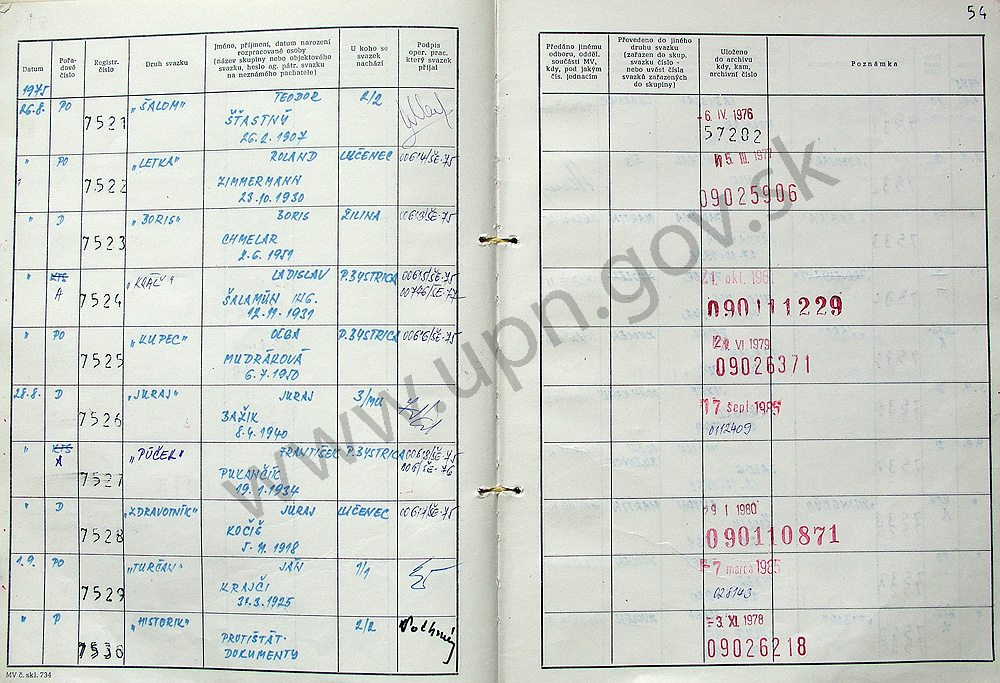 54
Datum
Pořa-
dové
číslo
Registr.
číslo
Druh svazku
Jméno, příjmení, datum narození
rozpracované osoby
(název skupiny nebo objektového
svazku, heslo ag. pátr. svazku
na neznámého pachatele)
U koho se
svazek
nachází
Podpis
oper. prac.
který svazek
přijal
Předáno jinému
odboru, odděl.
součásti MV,
kdy, pod jakým
čís. jednacím
Převedeno do jiného
druhu svazku
(zařazen do skup.
svazku číslo -
nebo uvést čísla
svazků zařazených
do skupiny)
Uloženo
do archivu
kdy, kam,
archivní číslo
Poznámka
1975
26.8. PO 7521 "ŠALOM" TEODOR 2/2
ŠŤASTNÝ
26.2.1907
6. IV. 1976
57202
" PO 7522 "LETKA" ROLAND LUČENEC 00614/ŠE-75
ZIMMERMANN
23.10.1930
5. III. 1977
09025906
" D 7523 "BORIS" BORIS ŽILINA
CHMELAR
2.6.1951
" KTS A 7524 "KRÁLY" LADISLAV P.BYSTRICA 00615/ŠE-75
00746/ŠE-77
ŠALAMÚN ING.
12.11.1931
21. okt. 198
090111229
" PO 7525 "KUPEC" OĽGA P.BYSTRICA 00616/ŠE-75
MUDRÁKOVÁ
6.7.1950
VI 1979
09026371
28.8. D 7526 "JURAJ" JURAJ 3/MU
BAŽIK
8.4.1940
17 sept 1985
0112409
" KTS A 7527 "PÚČEK" FRANTIŠEK P.BYSTRICA
PUKANČÍK
19.1.1934
" D 7528 "ZDRAVOTNÍK" JURAJ LUČENEC 00617/ŠE-75
KOČIŠ
5.11.1918
9 I 1980
090110871
1.9. PO 7529 "TURČAN" JÁN 1/1
KRAJČI
31.3.1925
7 marca 1985
028143
" P 7530 "HISTORIK" 2/2
PROTIŠTÁT.
DOKUMENTY
3. XI. 1978
09026218
MV č. skl. 734
www.upn.gov.sk